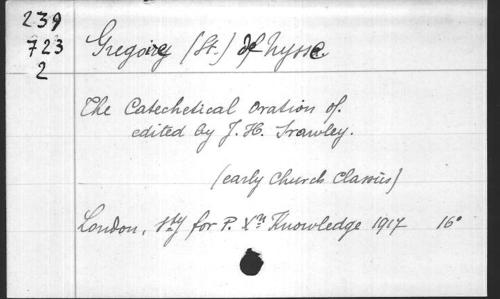 239
723
2
Gregoire (St.) de Nysse
The Catechetical Oration of.
edited by J. H. Srawley.
(early Church Classics)
London, Sty for P. Xn Knowledge 1917 16°